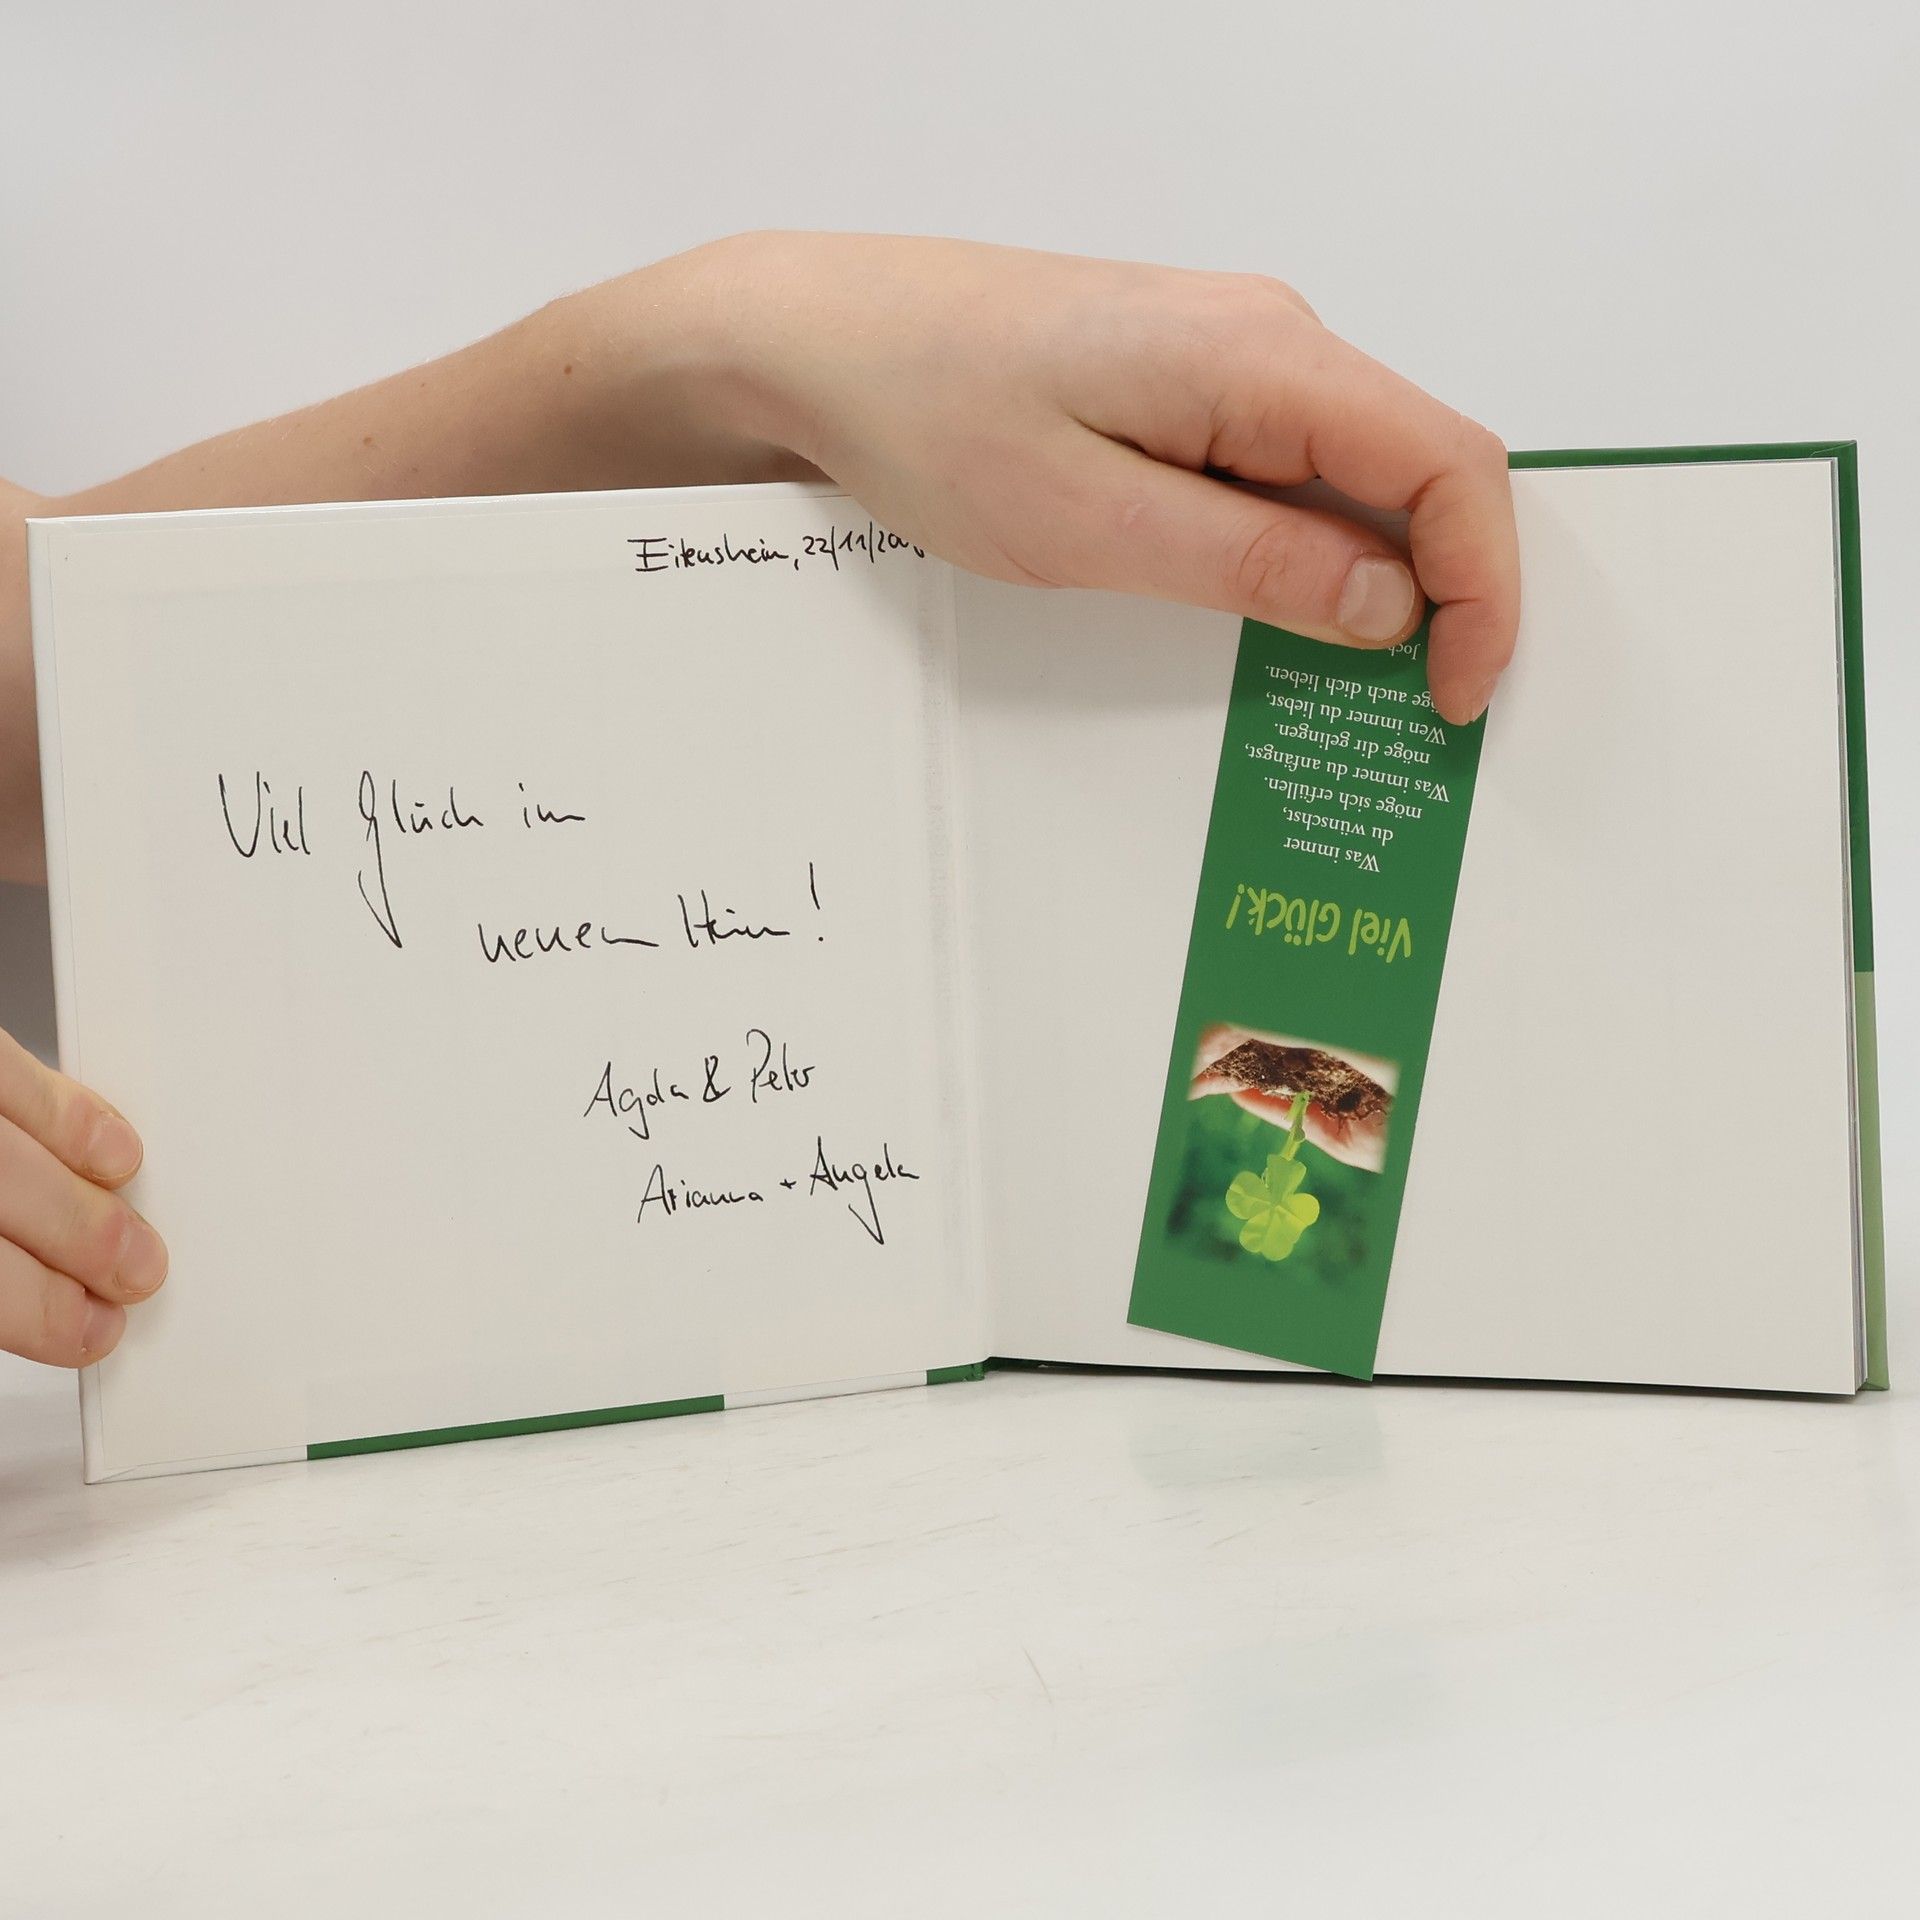 Eitensheim, 22/11/200
Viel Glück im
neuen Heim!
Agda & Peter
Arianna + Angela
Viel Glück!
Was immer
du wünschst,
möge sich erfüllen.
Was immer du anfängst,
möge dir gelingen.
Wen immer du liebst,
auch dich lieben.